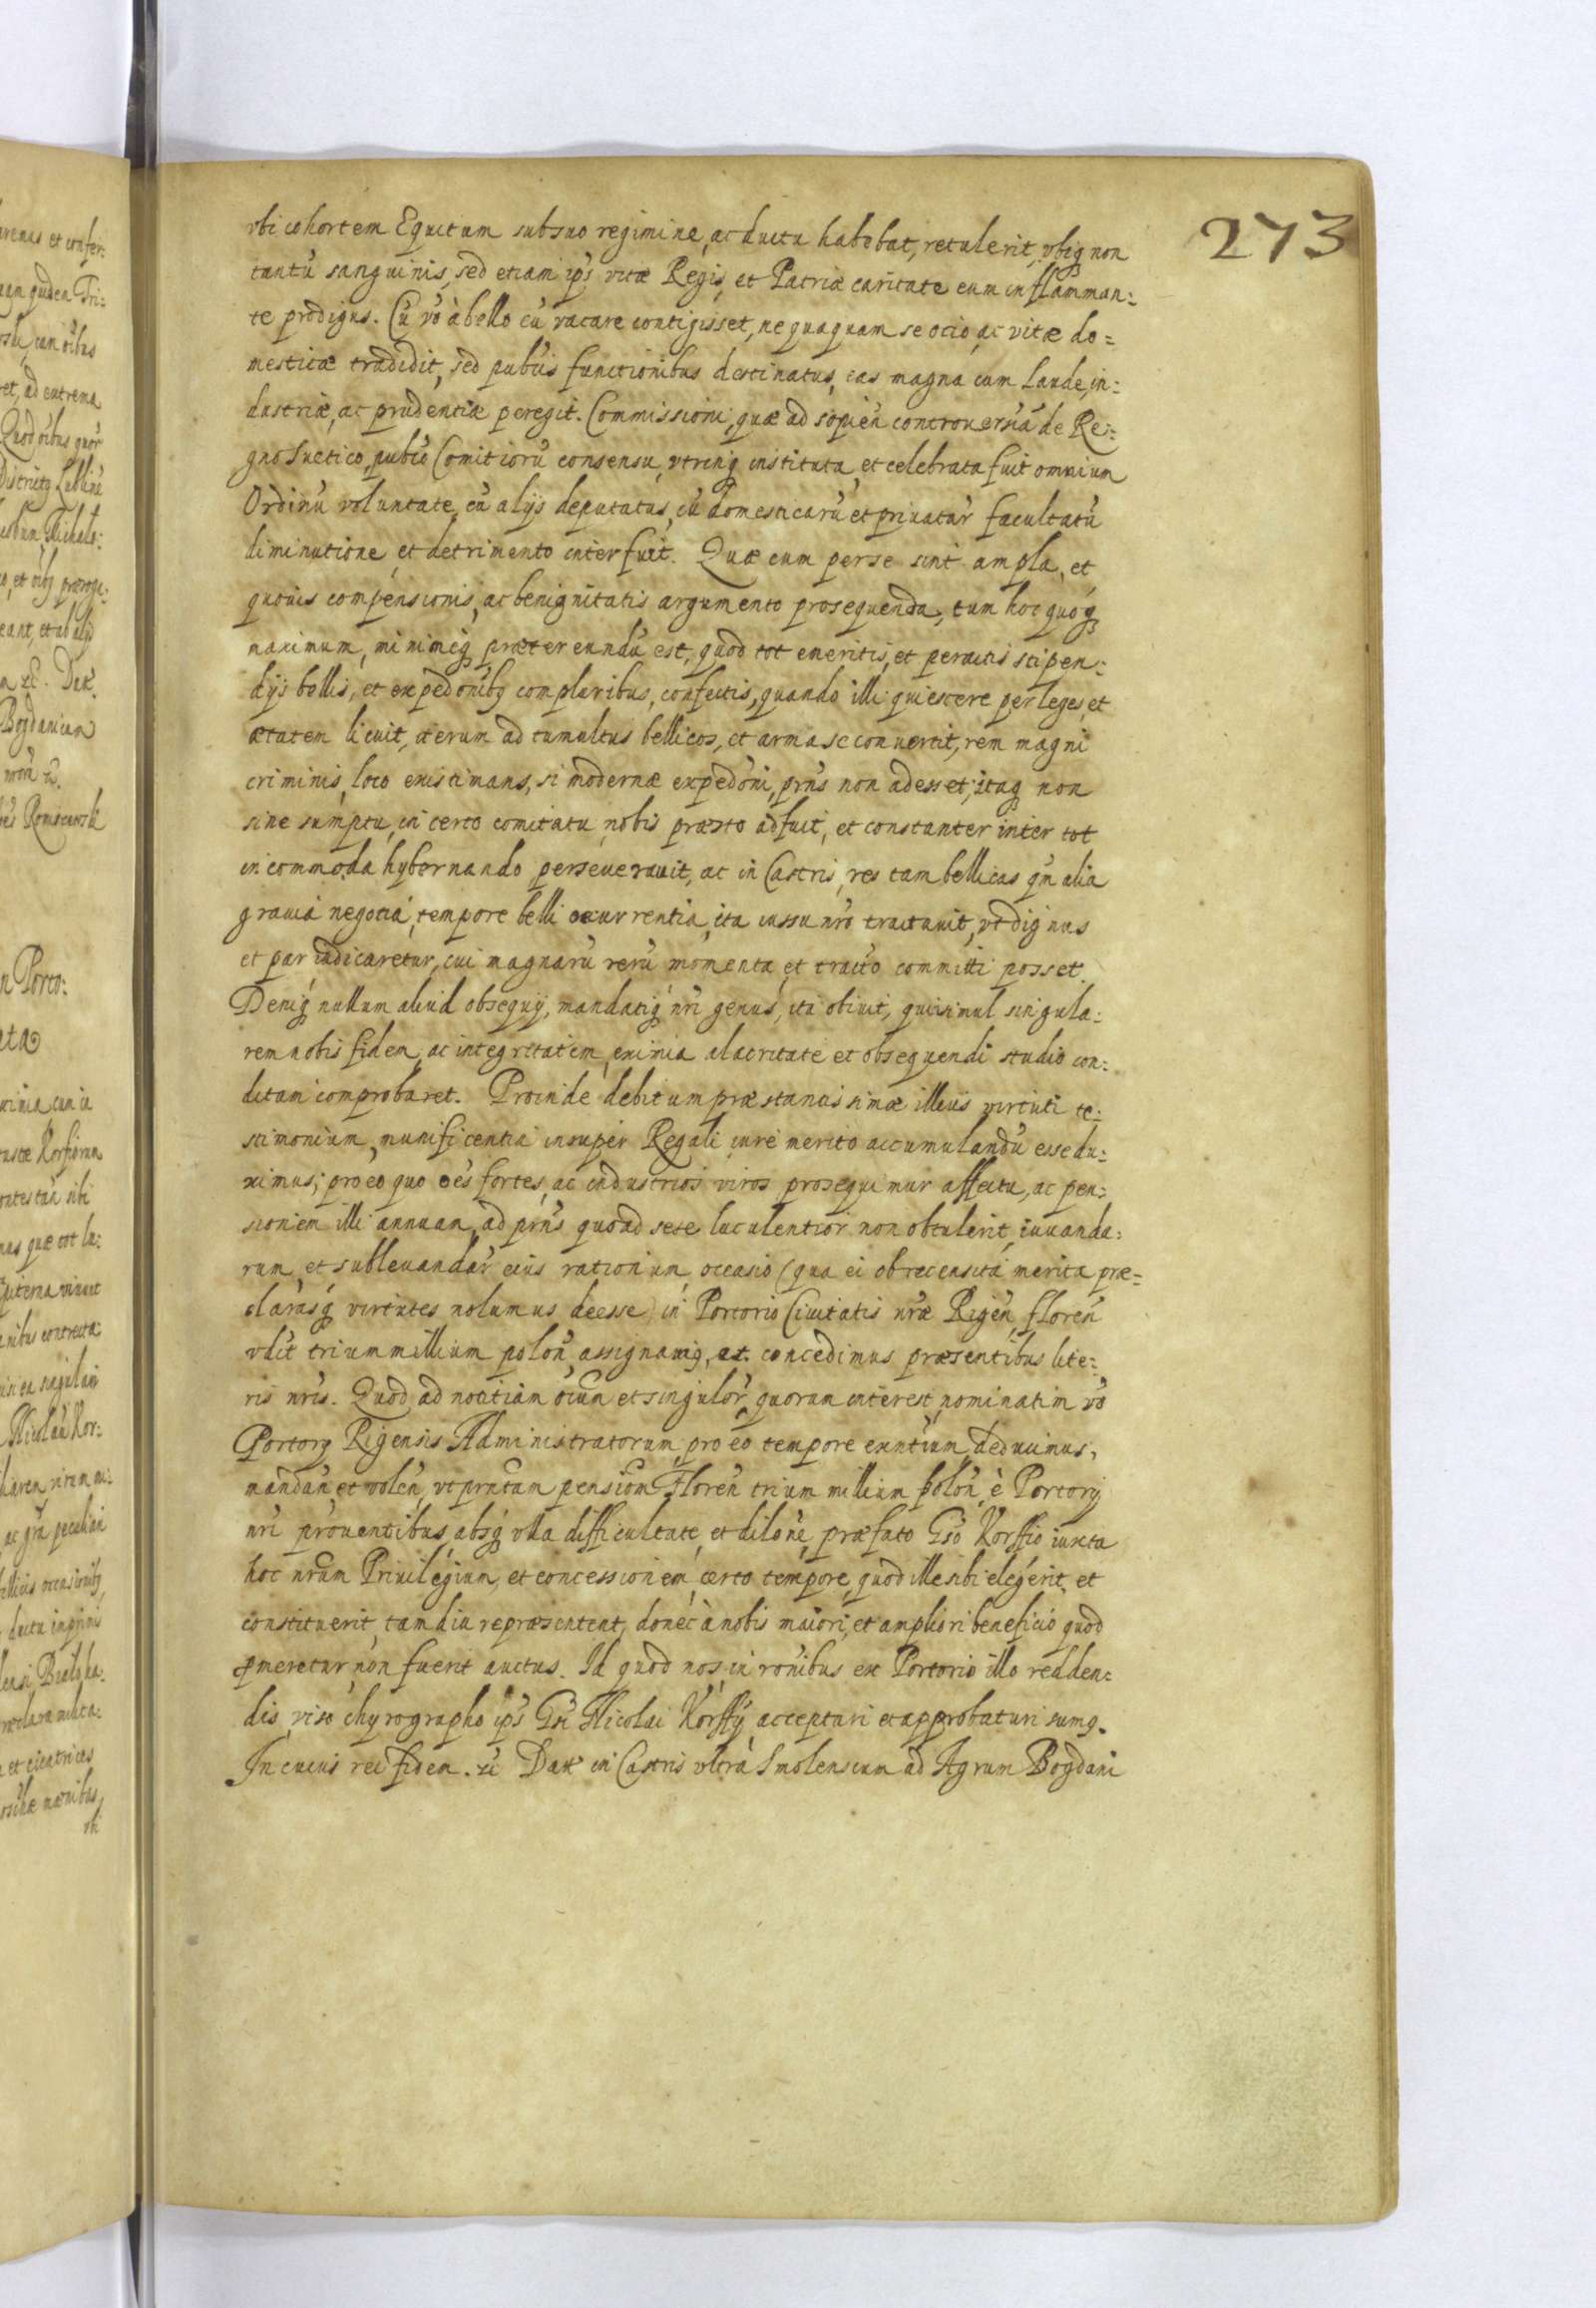 273
vbi cohortem Equitum sub suo regimine, ac ductu habebat, retulerit, vbiq; non
tantũ sanguinis, sed etiam ips' vitæ Regis, et Patriæ caritate eum inflamman:
te prodigus. Cũ vo à bello eũ vacare contigisset, nequaquam se ocio, ac vitæ do=
mesticæ tradidit, sed publis functionibus destinatus, eas magna cum laude, in:
dustriæ, ac prudentiæ peregit. Commissioni, quæ ad sopien̄ controuersiã de Re:
gno Suetico, publo Comitiorũ consensu, vtrinq; instituta, et celebrata fuit omnium
Ordinũ voluntate, cũ alijs deputatus, cũ domesticarũ et priuatar̄ facultatũ
diminutione, et detrimento interfuit. Quæ cum per se sint ampla, et
quouis compensionis, ac benignitatis argumento prosequenda, tum hoc quoq;
maximum, minimeq; prætereundũ est, quod tot emeritis, et peractis stipen:
dijs bellis, et expedonibq; compluribus, confectis, quando illi quiescere per leges, et
ætatem licuit, iterum ad tumultus bellicos, et arma se conuertit, rem magni
criminis, loco existimans, si modernæ expedoni, prns non adesset; itaq; non
sine sumptu, cũ certo comitatu, nobis præsto adfuit, et constanter inter tot
incommoda hybernando perseuerauit, ac in Castris, res tam bellicas qm̃ alia
grauia negotia, tempore belli occurrentia, ita iussu nro tractauit, vt dignus
et par iudicaretur, cui magnarũ rerũ momenta, et tracto committi posset.
Deniq; nullum aliud obsequij, mandatiq; nri genus, ita obiuit, qui simul singula:
rem nobis fidem, ac integritatem, eximia alacritate et obsequendi studio con:
ditam comprobaret. Proinde debitum præstantissimæ illius virtuti te:
stimonium, munificentia insuper Regali iure merito accumulandũ esse du:
ximus; pro eo quo oẽs fortes, ac industrios viros prosequimur affectu, ac pen:
sionem illi annuam, ad prns quoad sese luculentior non obtulerit, iuuanda:
rum, et subleuandar̄ eius rationum, occasio (qua ei ob recensita merita præ=
clarasq; virtutes nolumus deesse) in Portorio Ciuitatis nræ Rigen̄, floren̄
vdlt trium millium polon̄, assignamq;, et concedimus præsentibus lite:
ris nris. Quod ad notitiam oium et singulor̄, quorum interest, nominatim vo
Portorij Rigensis Administratorum, pro eo tempore exntium, deducimus,
mandan̄ et volen̄, vt prntam pensiom Floren̄ trium millium polon̄, è Portorij
nri prouentibus, absq; vlla difficultate, et dilone, præfato Gso Korffio iuxta
hoc nrum Priuilegium, et concessionem, certo tempore, quod ille sibi elegerit, et
constituerit, tamdiu repræsentent, donec à nobis maiori, et ampliori beneficio quod
pmeretur, non fuerit auctus. Id quod nos in ronibus ex Portorio illo redden=
dis, viso chyrographo ips' Gsi Nicolai Korffij, accepturi et approbaturi sumq;.
In cuius rei fidem. &c Dat' in Castris vltra Smolenscum ad Agrum Bogdani